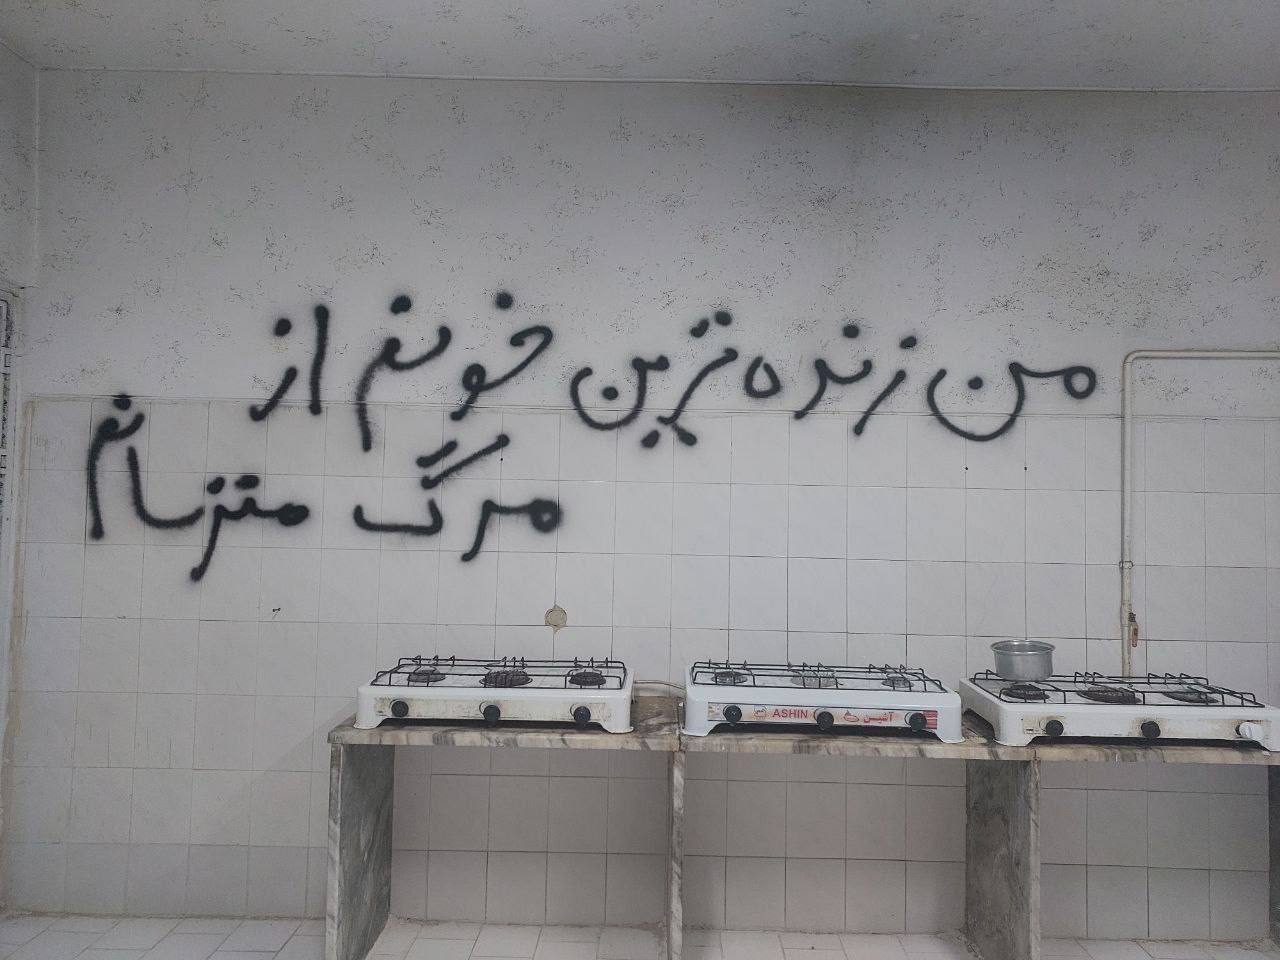 من زنده ترین خونم از
مرگ متنرسانم
ASHIN آشین